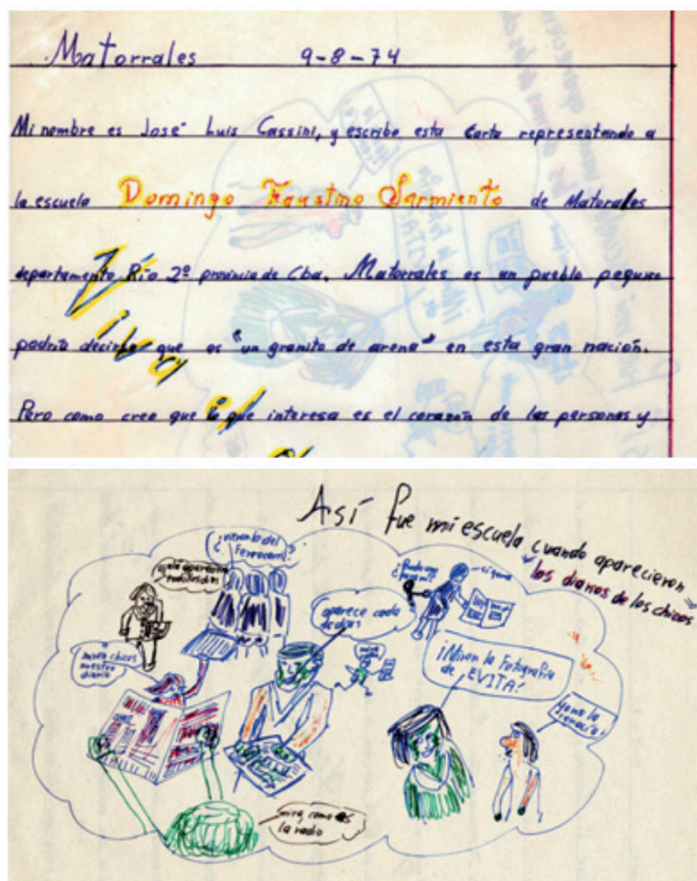 Matorrales 9-8-74
Mi nombre es José Luis Cassini, y escribo esta carta representando a
la escuela Domingo Faustino Sarmiento de Matorales
departamento Río 2º provincia de Cba. Matorrales es un pueblo pequeno
podría decirse que es "un granito de arena" en esta gran nación.
Pero como creo que lo que interesa es el corazón de las personas y
Viva el
Así fue mi escuela cuando aparecieron
los diarios de los chicos
¿vieron lo del
Ferrocarril?
todos los días
aparece cada
10 días
miren chicos
nuestro
diario
¡Miren la Fotografía
de EVITA!
mira como es
la radio